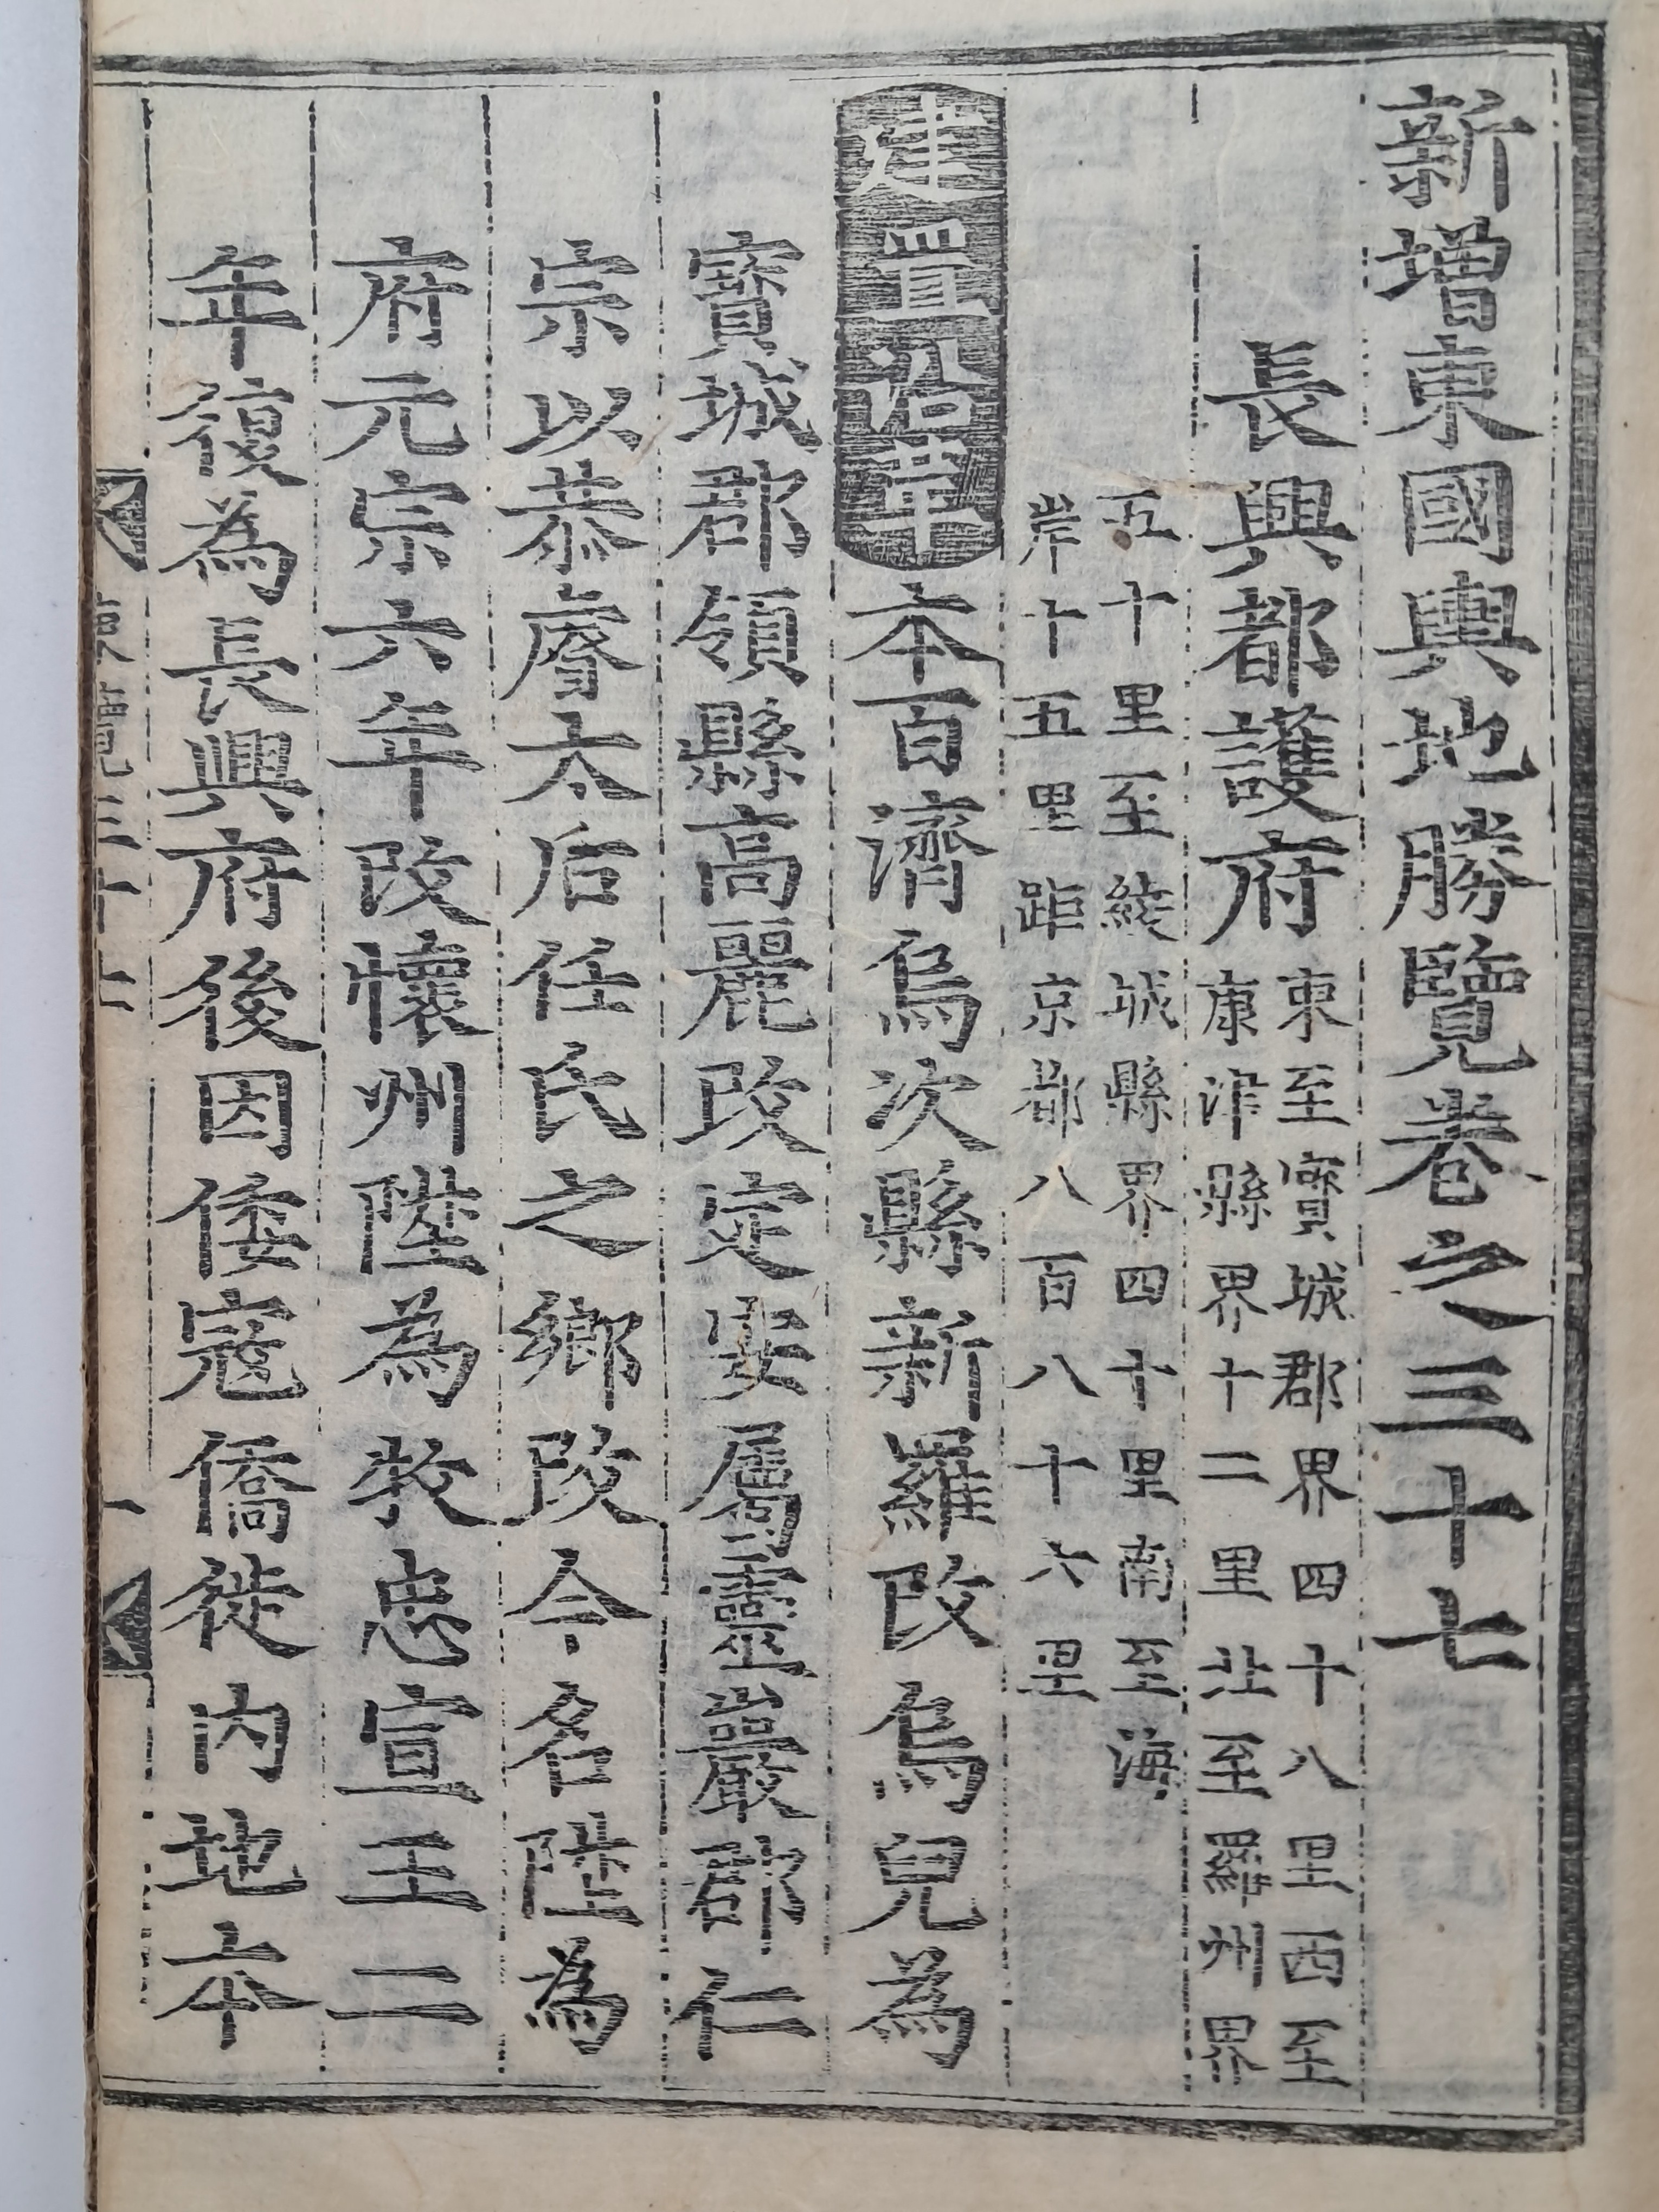 新增東國輿地勝覽卷之三十七
長興都護府
東至寶城郡界四十八里西至
康津縣界十二里北至羅州界
五十里至綾城縣界四十里南至海
岸十五里距京都八百八十六里
建置沿革本百濟烏次縣新羅改烏兒為
寶城郡領縣高麗改定安屬靈巖郡仁
宗以恭睿太后任氏之鄉改今名陞為
府元宗六年改懷州陞為牧忠宣王二
年復為長興府後因倭寇僑徙內地本